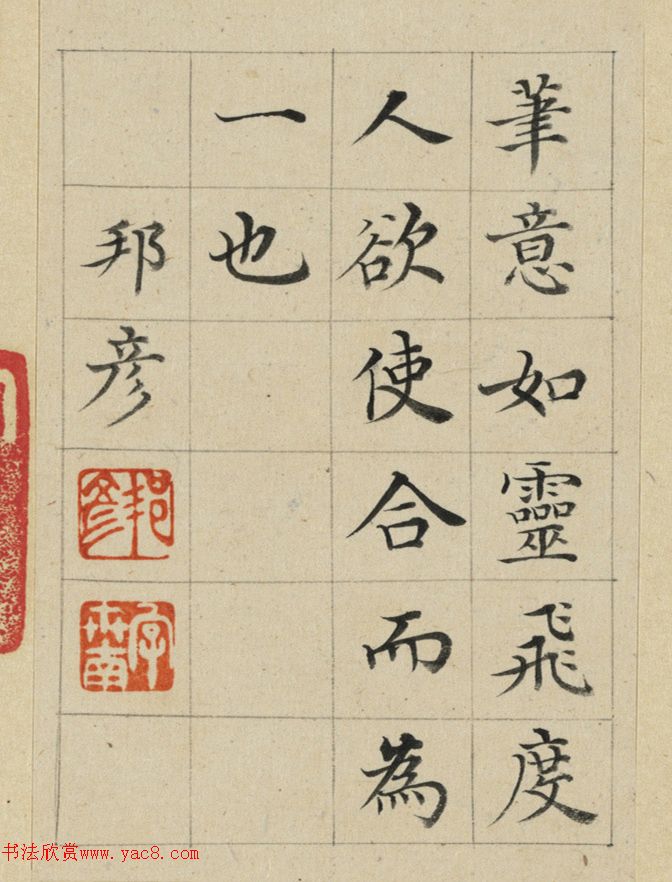 筆意如靈飛度
人欲使合而為
一也
邦彥
邦彥
字南
书法欣赏www.yac8.com